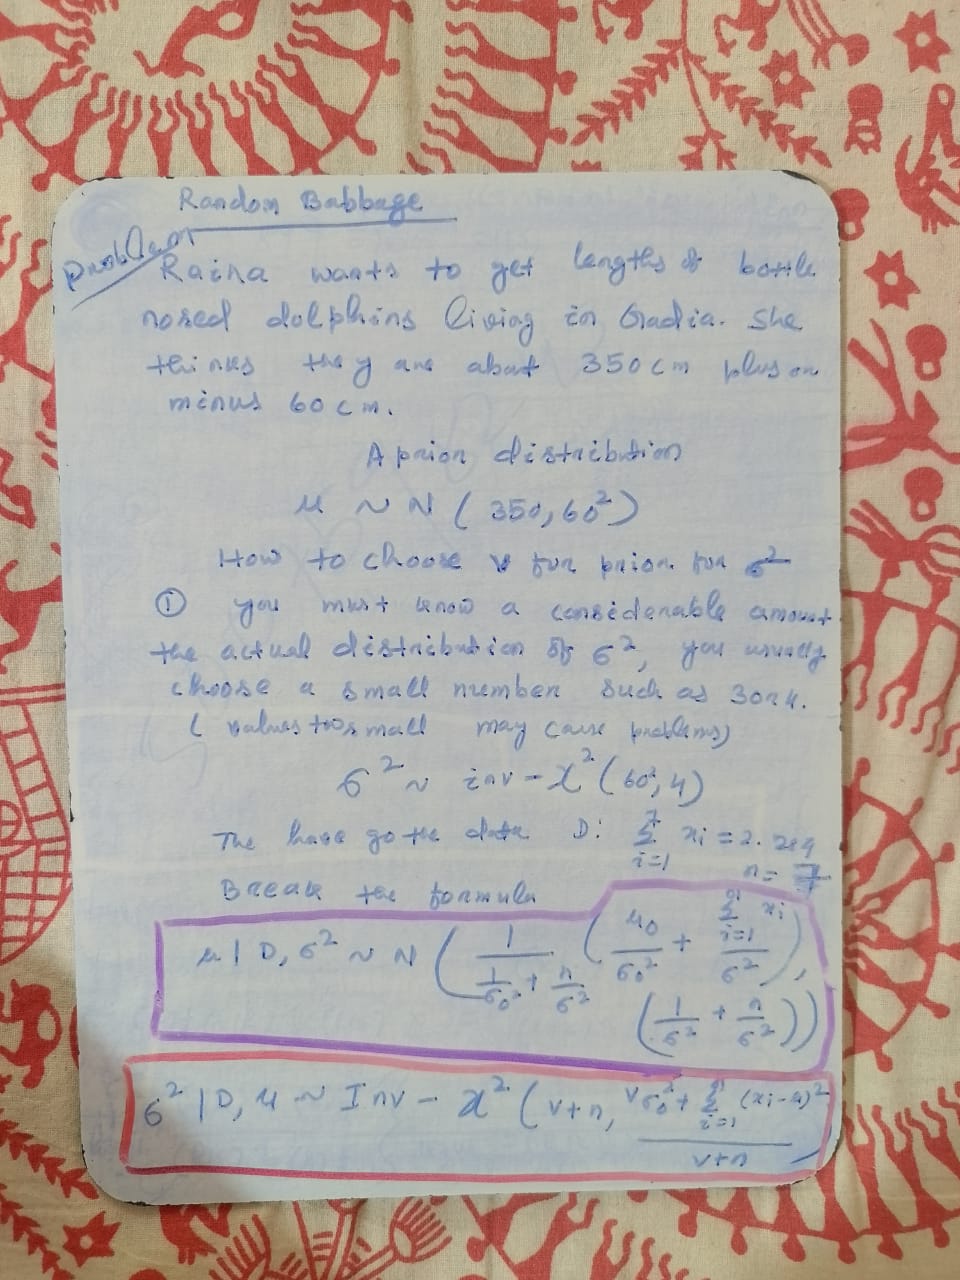 Random Babbage
Problem
Raina wants to get lengths of bottle
nosed dolphins living in Gradia. She
thinks they are about 350 cm plus or
minus 60 cm.
A prior distribution
μ ~ N ( 350, 60²)
How to choose v for prior for σ²
① you must know a considerable amount
the actual distribution of σ², you usually
choose a small number such as 3 or 4.
( values too small may cause problems)
σ² ~ inv - χ² ( 60², 4)
The have go the data D: Σ_{i=1}^{7} xi = 2.
n = 7
Break the formula
μ | D, σ² ~ N ( 1 / (1/σ₀² + n/σ²) ( μ₀/σ₀² + Σ_{i=1}^{n} xi / σ² ),
( 1/σ² + n/σ² ))
σ² | D, μ ~ Inv - χ² ( v+n, (vσ₀² + Σ_{i=1}^{n} (xi - μ)²) / (v+n)